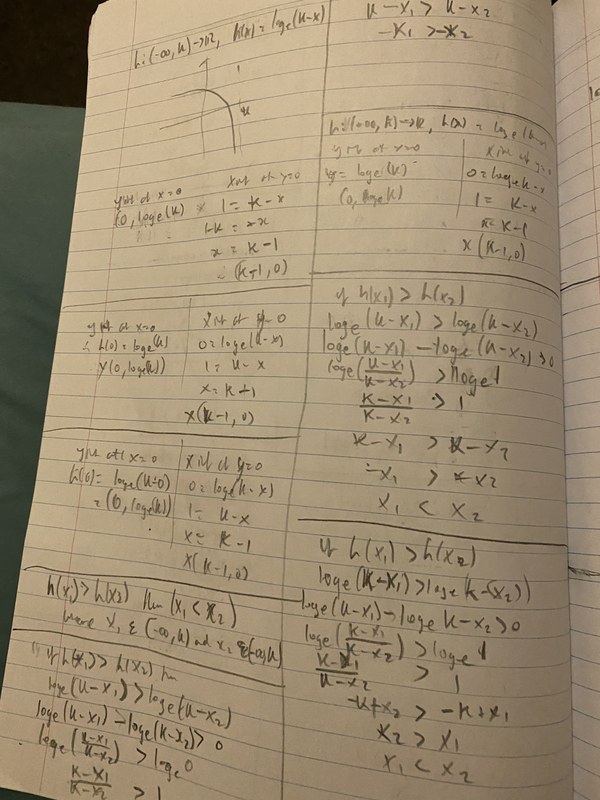 h:(-∞, k)→R, h(x) = loge(k-x)
k
y int at x=0
(0, loge(k))
x int at y=0
1 = k-x
x = k-1
(k-1, 0)
y int at x=0
∴ h(0) = loge(k)
Y(0, loge(k))
x int at y=0
0 = loge(k-x)
1 = k-x
x = k-1
X(k-1, 0)
y int at x=0
h(0) = loge(k-0)
= (0, loge(k))
x int at y=0
0 = loge(k-x)
1 = k-x
x = k-1
X(k-1, 0)
h(x1) > h(x2) then (x1 < x2)
where x1 ∈ (-∞, k) and x2 ∈ (-∞, k)
if h(x1) > h(x2)
loge(k-x1) > loge(k-x2)
loge(k-x1) - loge(k-x2) > 0
loge((k-x1)/(k-x2)) > loge 0
(k-x1)/(k-x2) > 1
k-x1 > k-x2
-x1 > -x2
h:(-∞, k)→R, h(x) = loge(k-x)
y int at x=0
y = loge(k)
(0, loge k)
x int at y=0
0 = loge k-x
1 = k-x
x = k-1
X(k-1, 0)
if h(x1) > h(x2)
loge(k-x1) > loge(k-x2)
loge(k-x1) - loge(k-x2) > 0
loge((k-x1)/(k-x2)) > loge 1
(k-x1)/(k-x2) > 1
k-x1 > k-x2
-x1 > -x2
x1 < x2
if h(x1) > h(x2)
loge(k-x1) > loge(k-(x2))
loge(k-x1) - loge k-x2 > 0
loge((k-x1)/(k-x2)) > loge 1
(k-x1)/(k-x2) > 1
-k+x2 > -k+x1
x2 > x1
x1 < x2